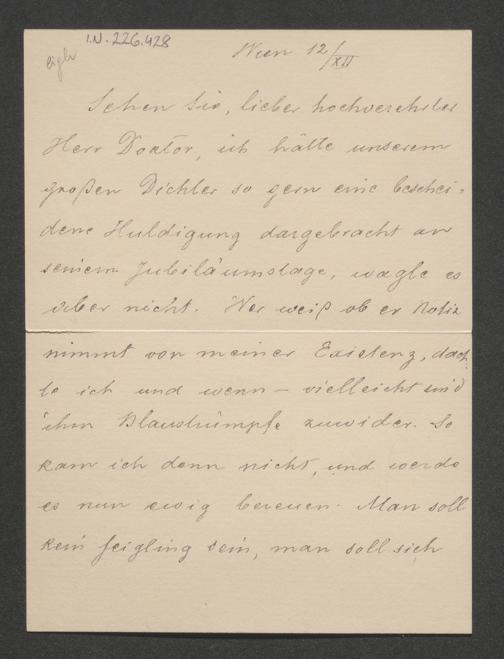 I.N. 226.428
Wien 12/XII
Sehen Sie, lieber hochverehrter
Herr Doktor, ich hätte unserem
großen Dichter so gern eine beschei-
dene Huldigung dargebracht an
seinem Jubiläumstage, wagte es
aber nicht. Wer weiß ob er Notiz
nimmt von meiner Existenz, dach-
te ich und wenn – vielleicht sind
ihm Blaustrümpfe zuwider. So
kam ich denn nicht, und werde
es nun ewig bereuen. Man soll
kein Feigling sein, man soll sich